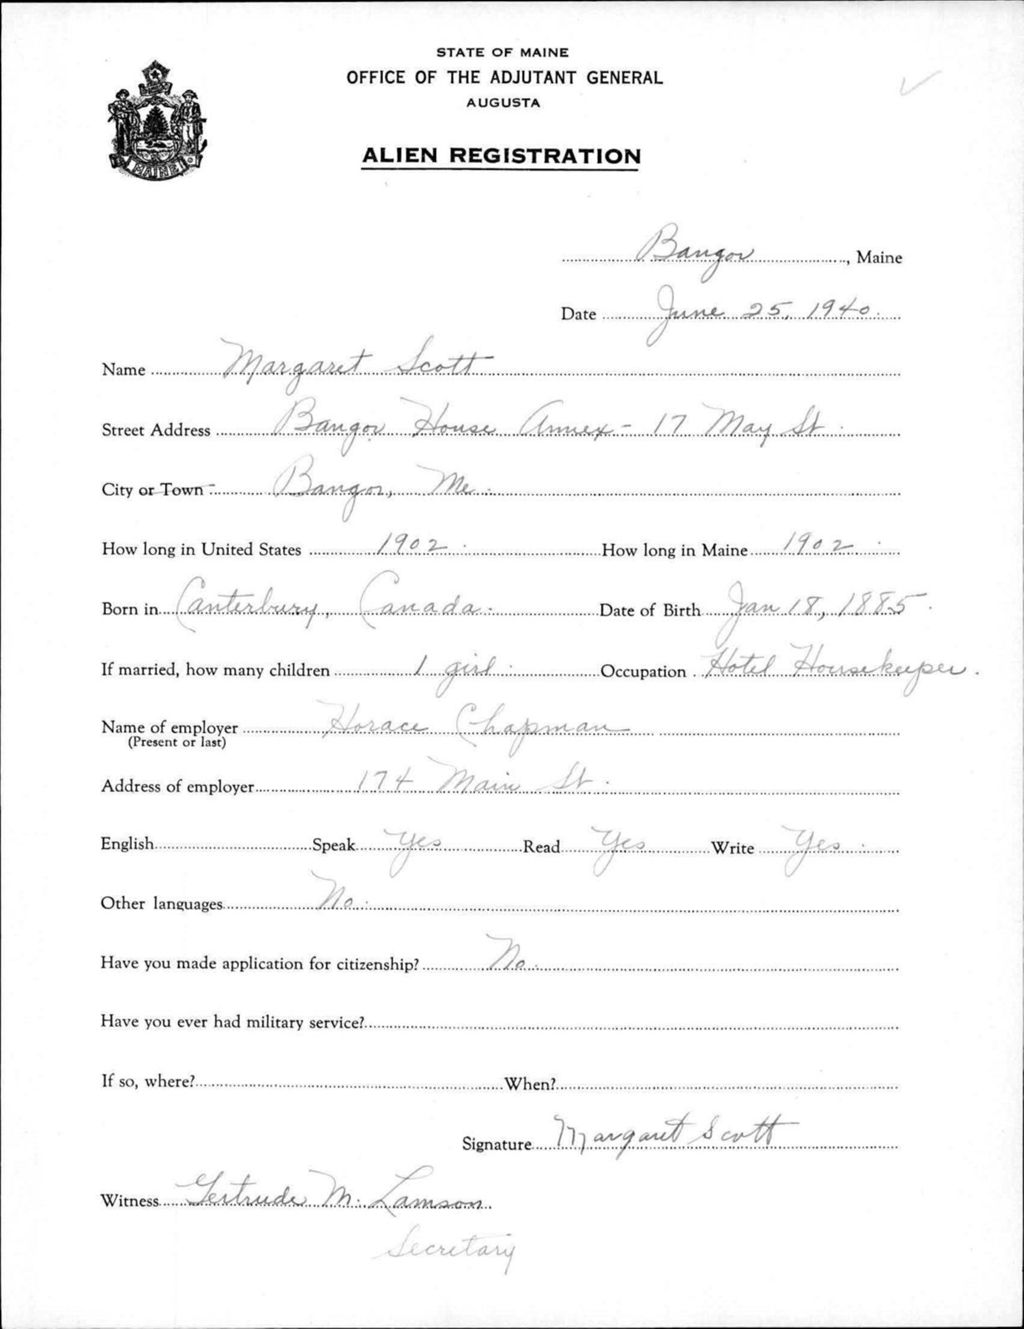 STATE OF MAINE
OFFICE OF THE ADJUTANT GENERAL
AUGUSTA
ALIEN REGISTRATION
MAINE
Bangor, Maine
Date June 25, 1940.
Name Margaret Scott
Street Address Bangor House Annex - 17 May St.
City or Town - Bangor, Me.
How long in United States 1902. How long in Maine 1902.
Born in Canterbury, Canada. Date of Birth Jan 18, 1885.
If married, how many children 1 girl. Occupation Hotel Housekeeper.
Name of employer Horace Chapman
(Present or last)
Address of employer 174 Main St.
English Speak Yes Read Yes Write Yes.
Other languages No.
Have you made application for citizenship? No.
Have you ever had military service?
If so, where? When?
Signature Margaret Scott
Witness Gertrude M. Lamson.
Secretary